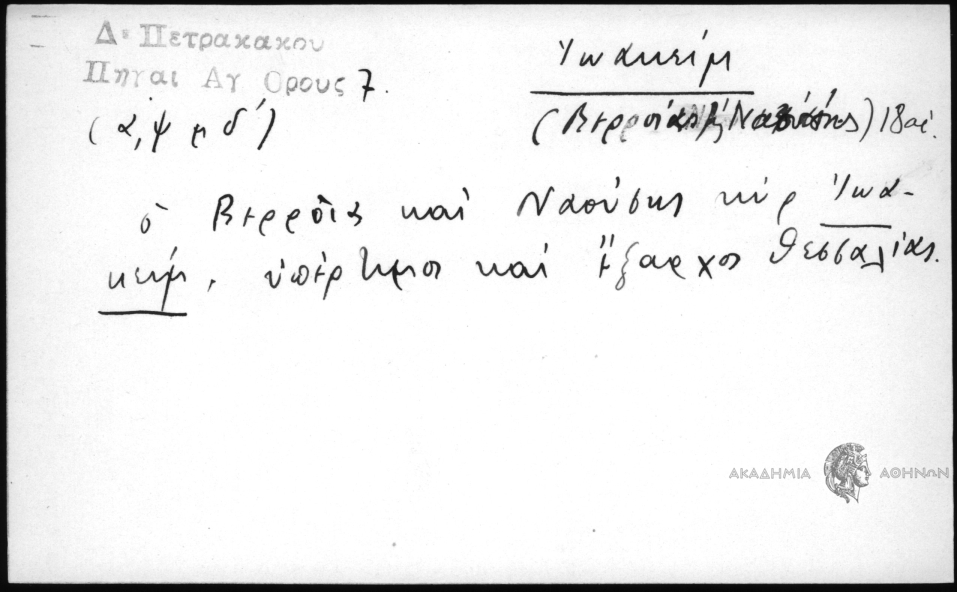 Δ. Πετρακακου
Πηγαι Αγ Ορους 7.
(α,ψμδ')
Ἰωακείμ
(Βερροίας καὶ Ναούσης) 18 αἰ.
ὁ Βερροίας καὶ Ναούσης κύρ Ἰωα-
κείμ, ὑπέρτιμος καὶ ἔξαρχος Θεσσαλίας.
ΑΚΑΔΗΜΙΑ ΑΘΗΝΩΝ